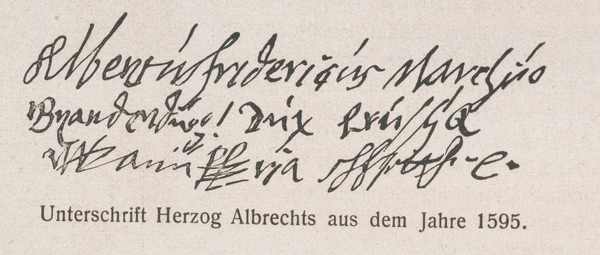 Albertus fridericus Marchio
Brandenburg! Dux Prussiæ
Unterschrift Herzog Albrechts aus dem Jahre 1595.